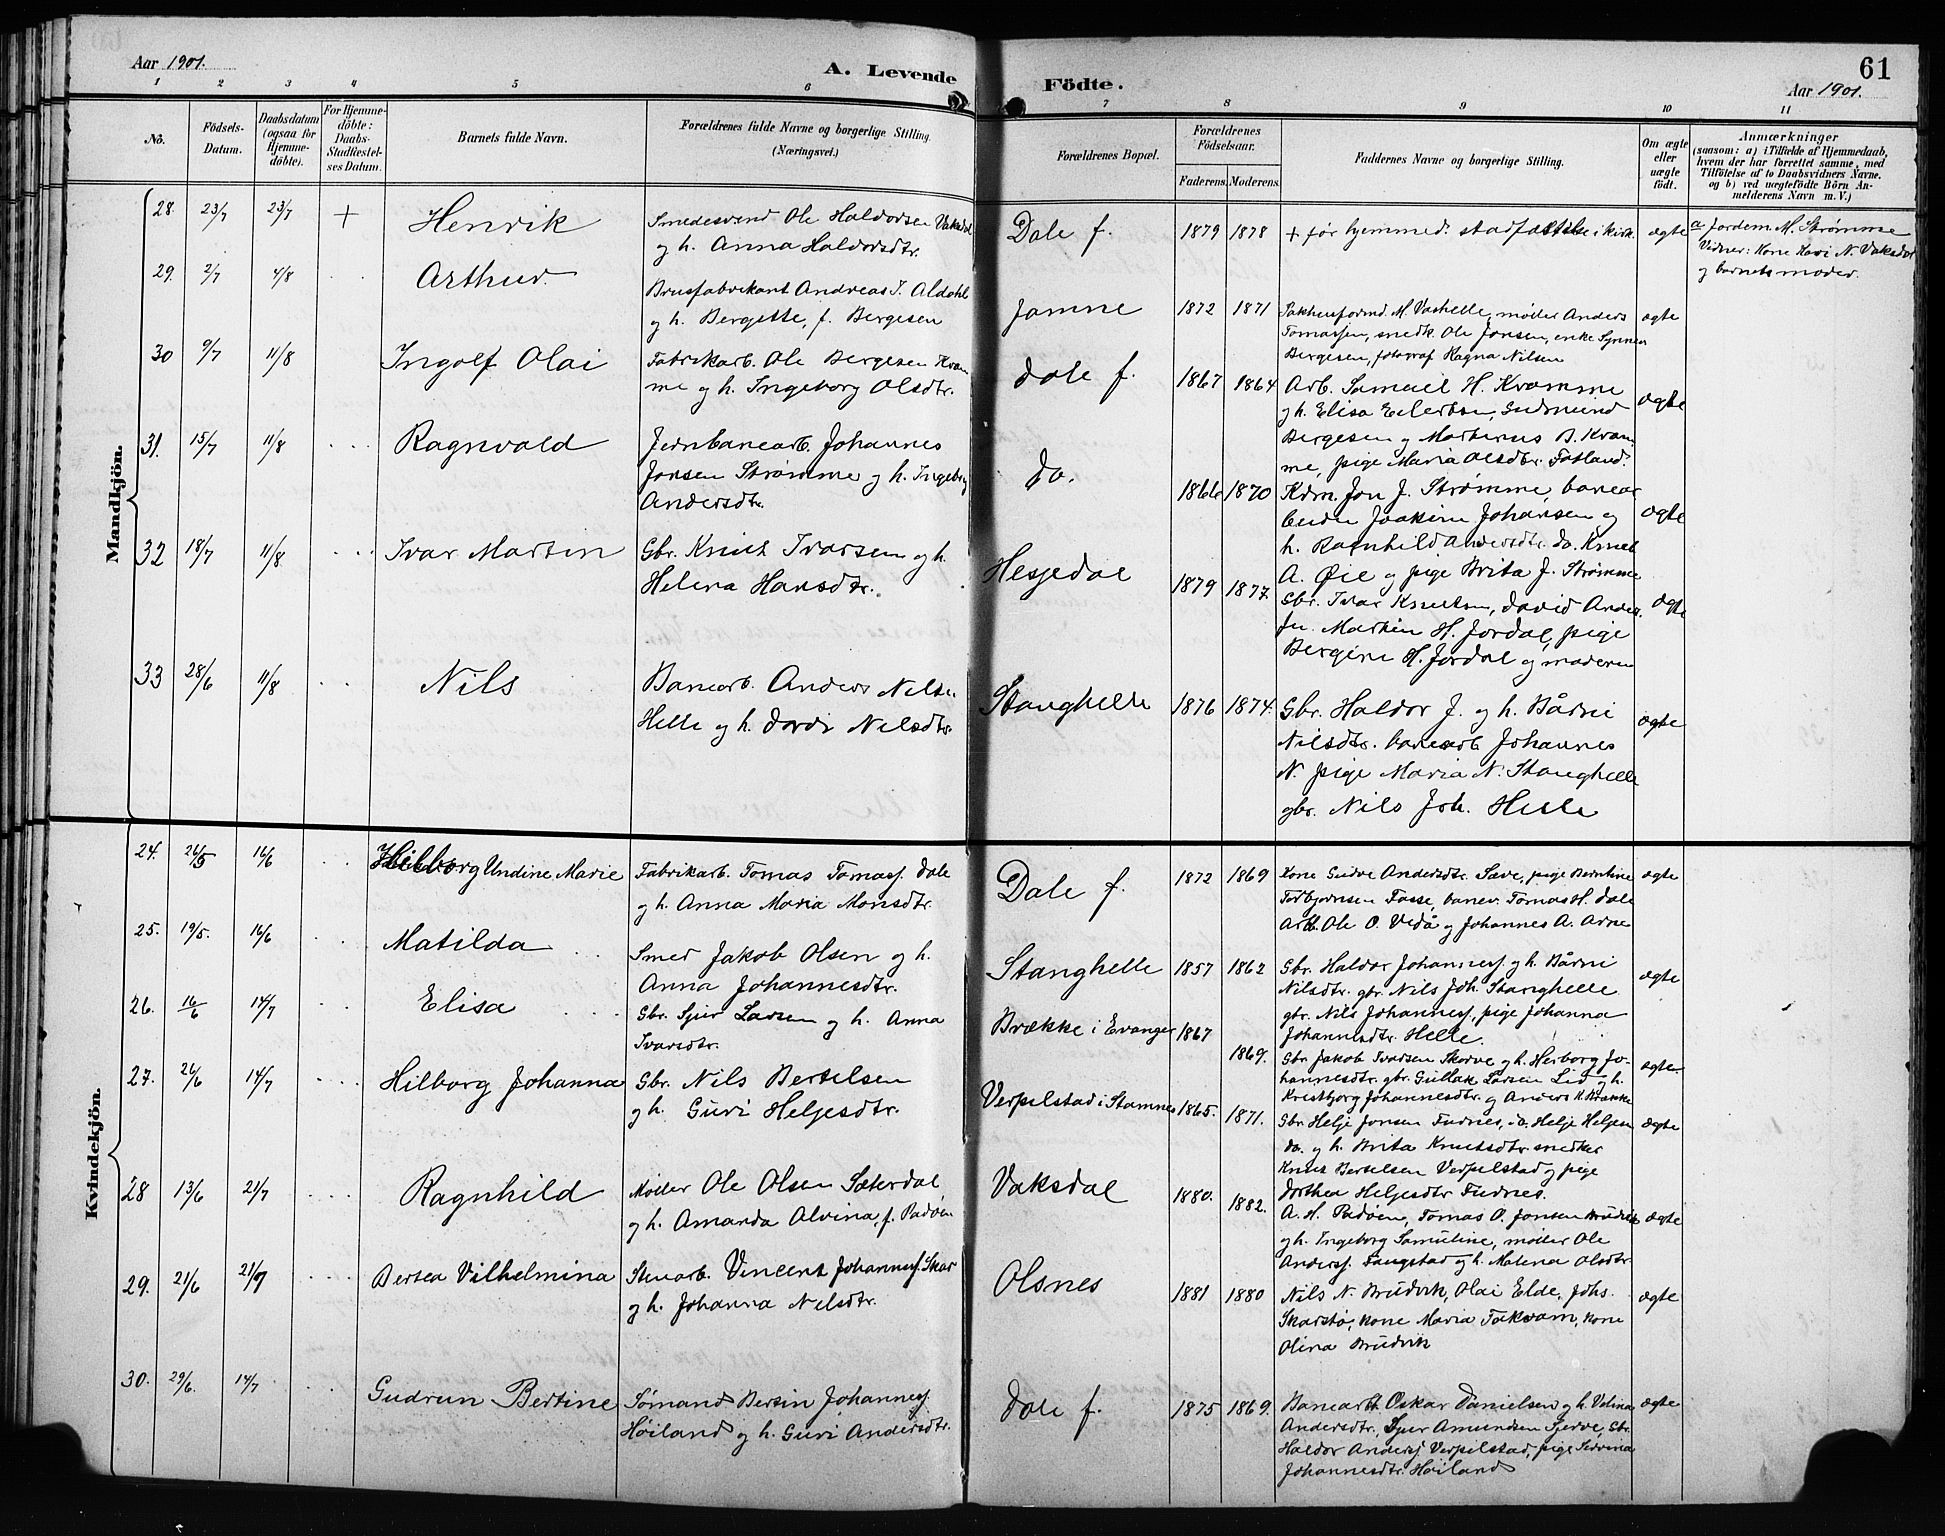 Aar 1901.
A. Levende
Födte.
61
Aar 1901.
1 2 3 4 5 6 7 8 9 10 11
No.
Födsels-
Datum.
Daabsdatum
(ogsaa for
Hjemme-
döbte).
For Hjemme-
döbte:
Daabs-
Stadfæstel-
ses Datum.
Barnets fulde Navn.
Forældrenes fulde Navne og borgerlige Stilling.
(Næringsvei.)
Forældrenes Bopæl.
Forældrenes
Födselsaar.
Faderens. Moderens.
Faddernes Navne og borgerlige Stilling.
Om ægte
eller
uægte
födt.
Anmærkninger
(saasom: a) i Tilfælde af Hjemmedaab,
hvem der har forrettet samme, med
Tilföielse af to Daabsvidners Navne.
og b) ved uægtefödte Börn An-
melderens Navn m. V.)
Mandkjön.
28. 23/7 23/7 +
Henrik
Smedesvend Ole Haldorsen Vaksdal
og h. Anna Haldorsdtr.
Dale f.
1879 1878
+ før hjemmed. stadfæstelse i kirk.
ægte
a. Jordem. M. Strømme
Vidner: Kone Kari N. Vaksdal
og barnets moder.
29. 2/7 4/8
Arthur
Brusfabrikant Andreas J. Aldahl
og h. Bergette, f. Bergesen
Jamne
1872 1871
Pakhusformd. M. Vashelle, møller Anders
Tomassen, snedk. Ole Jonsen, enke Synneva
Bergesen, fotograf Ragna Nilsen
ægte
30 9/7 11/8
Ingolf Olai
Fabrikarb. Ole Bergesen Kvam-
me og h. Ingeborg Olsdtr.
Dale f.
1867 1864
Arb. Samuel H. Kvamme
og h. Elisa Eilertsen, Gudmund
Bergesen og Martinus B. Kvam-
me, pige Maria Olsdtr. Fatland.
ægte
31. 15/7 11/8
Ragnvald
Jernbanearb. Johannes
Jonsen Strømme og h. Ingeborg
Andersdtr.
do.
1866 1870
Kdm. Jon J. Strømme, banear-
beider Joakim Johansen og
h. Ragnhild Andersdtr. do. Knut
A. Øie og pige Brita J. Strømme
ægte
32 18/7 11/8
Ivar Martin
Gbr. Knut Ivarsen og h.
Helena Hansdtr.
Hesjedal
1879 1877
Gbr. Ivar Knutsen, David Anders-
sen. Martin H. Jordal, pige
Bergine H. Jordal og moderen
ægte
33 28/6 11/8
Nils
Banearb. Anders Nilsen
Helle og h. Dordi Nilsdtr.
Stanghelle
1876 1874.
Gbr. Haldor J. og h. Bårni
Nilsdtr. banearb Johannes
N. pige Maria N. Stanghelle
gbr. Nils Joh. Helle
ægte
Kvindekjön.
24. 26/5 16/6
Hilborg Undine Marie
Fabrikarb. Tomas Tomass. Dale
og h. Anna Maria Monsdtr.
Dale f.
1872 1869
Kone Gudve Andersdtr. Sæve, pige Berntine
Torbjørnsen Fosse, banev. Tomas H. Dale
Arb. Ole O. Vedå og Johannes A. Arne
ægte
25. 19/5. 16/6
Matilda
Smed Jakob Olsen og h.
Anna Johannesdtr.
Stanghelle
1857 1862
Gbr. Haldor Johanness. og h. Bårni
Nilsdtr. gbr. Nils Joh. Stanghelle
gbr. Nils Johanness., pige Johanna
Johannesdtr. Helle.
ægte
26. 16/6 14/7
Elisa
Gbr. Sjur Larsen og h. Anna
Ivarsdtr.
Brække i Evanger
1867 1869.
Gbr. Jakob Ivarsen Skorve og h. Herborg Jo-
hannesdtr. gbr. Gullak Larsen Lid og h.
Kristbjørg Johannesdtr. og Anders K. Brække
ægte.
27. 26/6 14/7
Hilborg Johanna
Gbr. Nils Bertelsen
og h. Guri Helgesdtr.
Verpelstad i Stamnes
1865. 1871.
Gbr. Helje Jonsen Fudnes, do. Helje Heljesen
do. og h. Brita Knutsdtr. snedker
Knut Bertelsen Verpelstad og pige
Dorthea Heljesdtr Fudnes.
ægte
28 13/6 21/7
Ragnhild
Møller Ole Olsen Sæterdal
og h. Amanda Alvina, f. Padøen
Vaksdal
1880. 1882.
A. H. Padøen, Tomas O. Jonsen Brudvik
og h. Ingeborg Samuline, møller Ole
Anderss. Tangstad og h. Malena Olsdtr.
ægte
29. 21/6 21/7
Bertea Vilhelmina
Stenarb. Vincent Johanness. Skar
og h. Johanna Nilsdtr.
Olsnes
1881 1880
Nils N. Brudvik, Olai Elde, Johs.
Skarstø, kone Maria Takvam, kone
Olina Brudvik
ægte
30. 29/6. 14/7
Gudrun Bertine
Sømand Bertin Johanness.
Høiland og h. Guri Andersdtr.
Dale f.
1875 1869.
Banearb Oskar Danielsen og h. Valina
Andersdtr., Sjur Amundsen Gjerve, Gbr.
Haldor Anderss. Verpelstad, pige Servina
Johannesdtr. Høiland
ægte